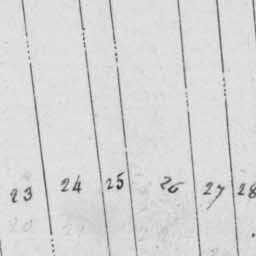 23 24 25 26 27 28